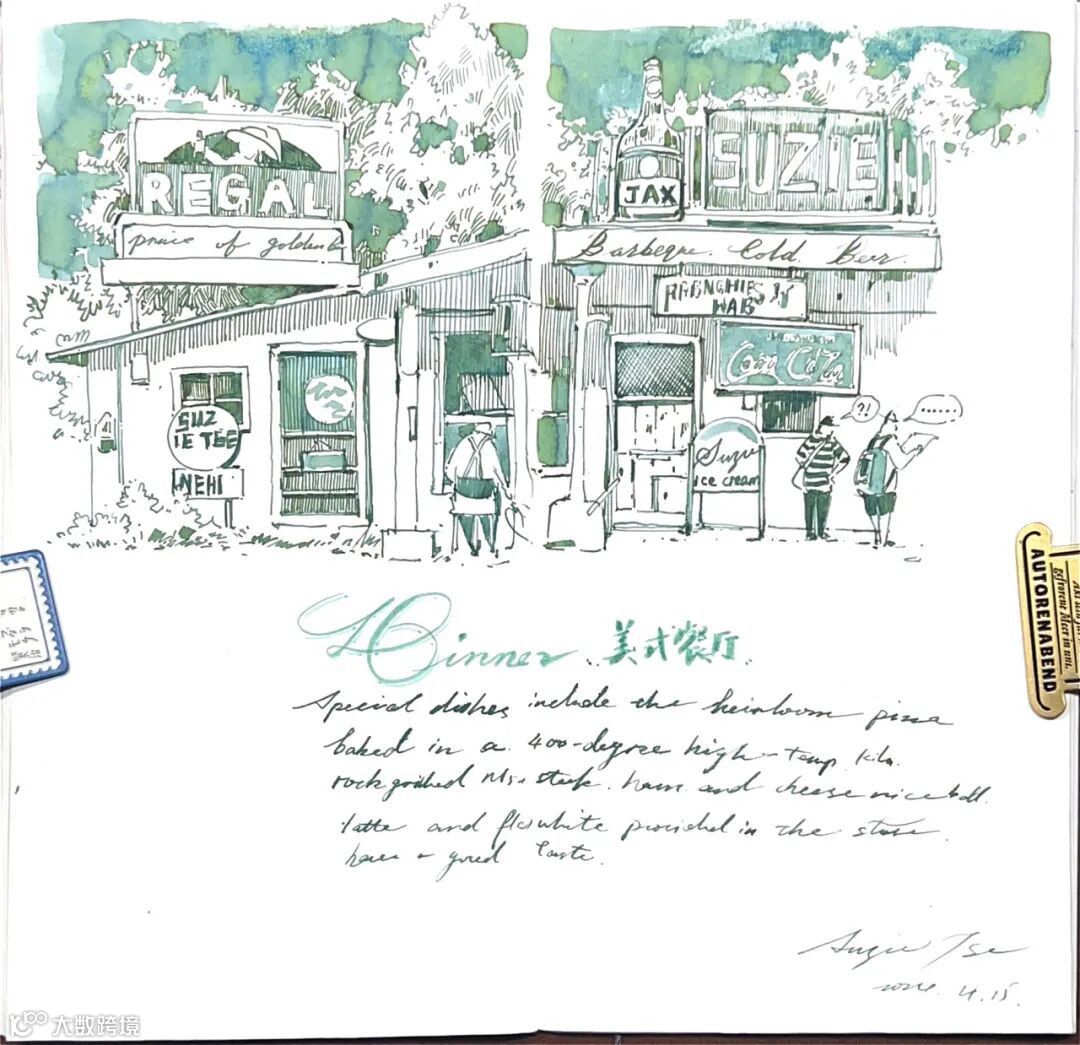 REGAL
JAX
SUZIE
prince of golden
Barbeque. Cold. Beer.
SUZ
IE TSE
NEHI
?!
.......
Suzie
ice cream
AUTORENABEND
Dinner. 美式餐厅.
Special dishes include the heirloom pizza
baked in a 400-degree high-temp kiln.
rock grilled steak. ham and cheese rice ball.
latte and flat white provided in the store.
have a good taste.
Suzie Tse
2024. 4. 15.
大数跨境